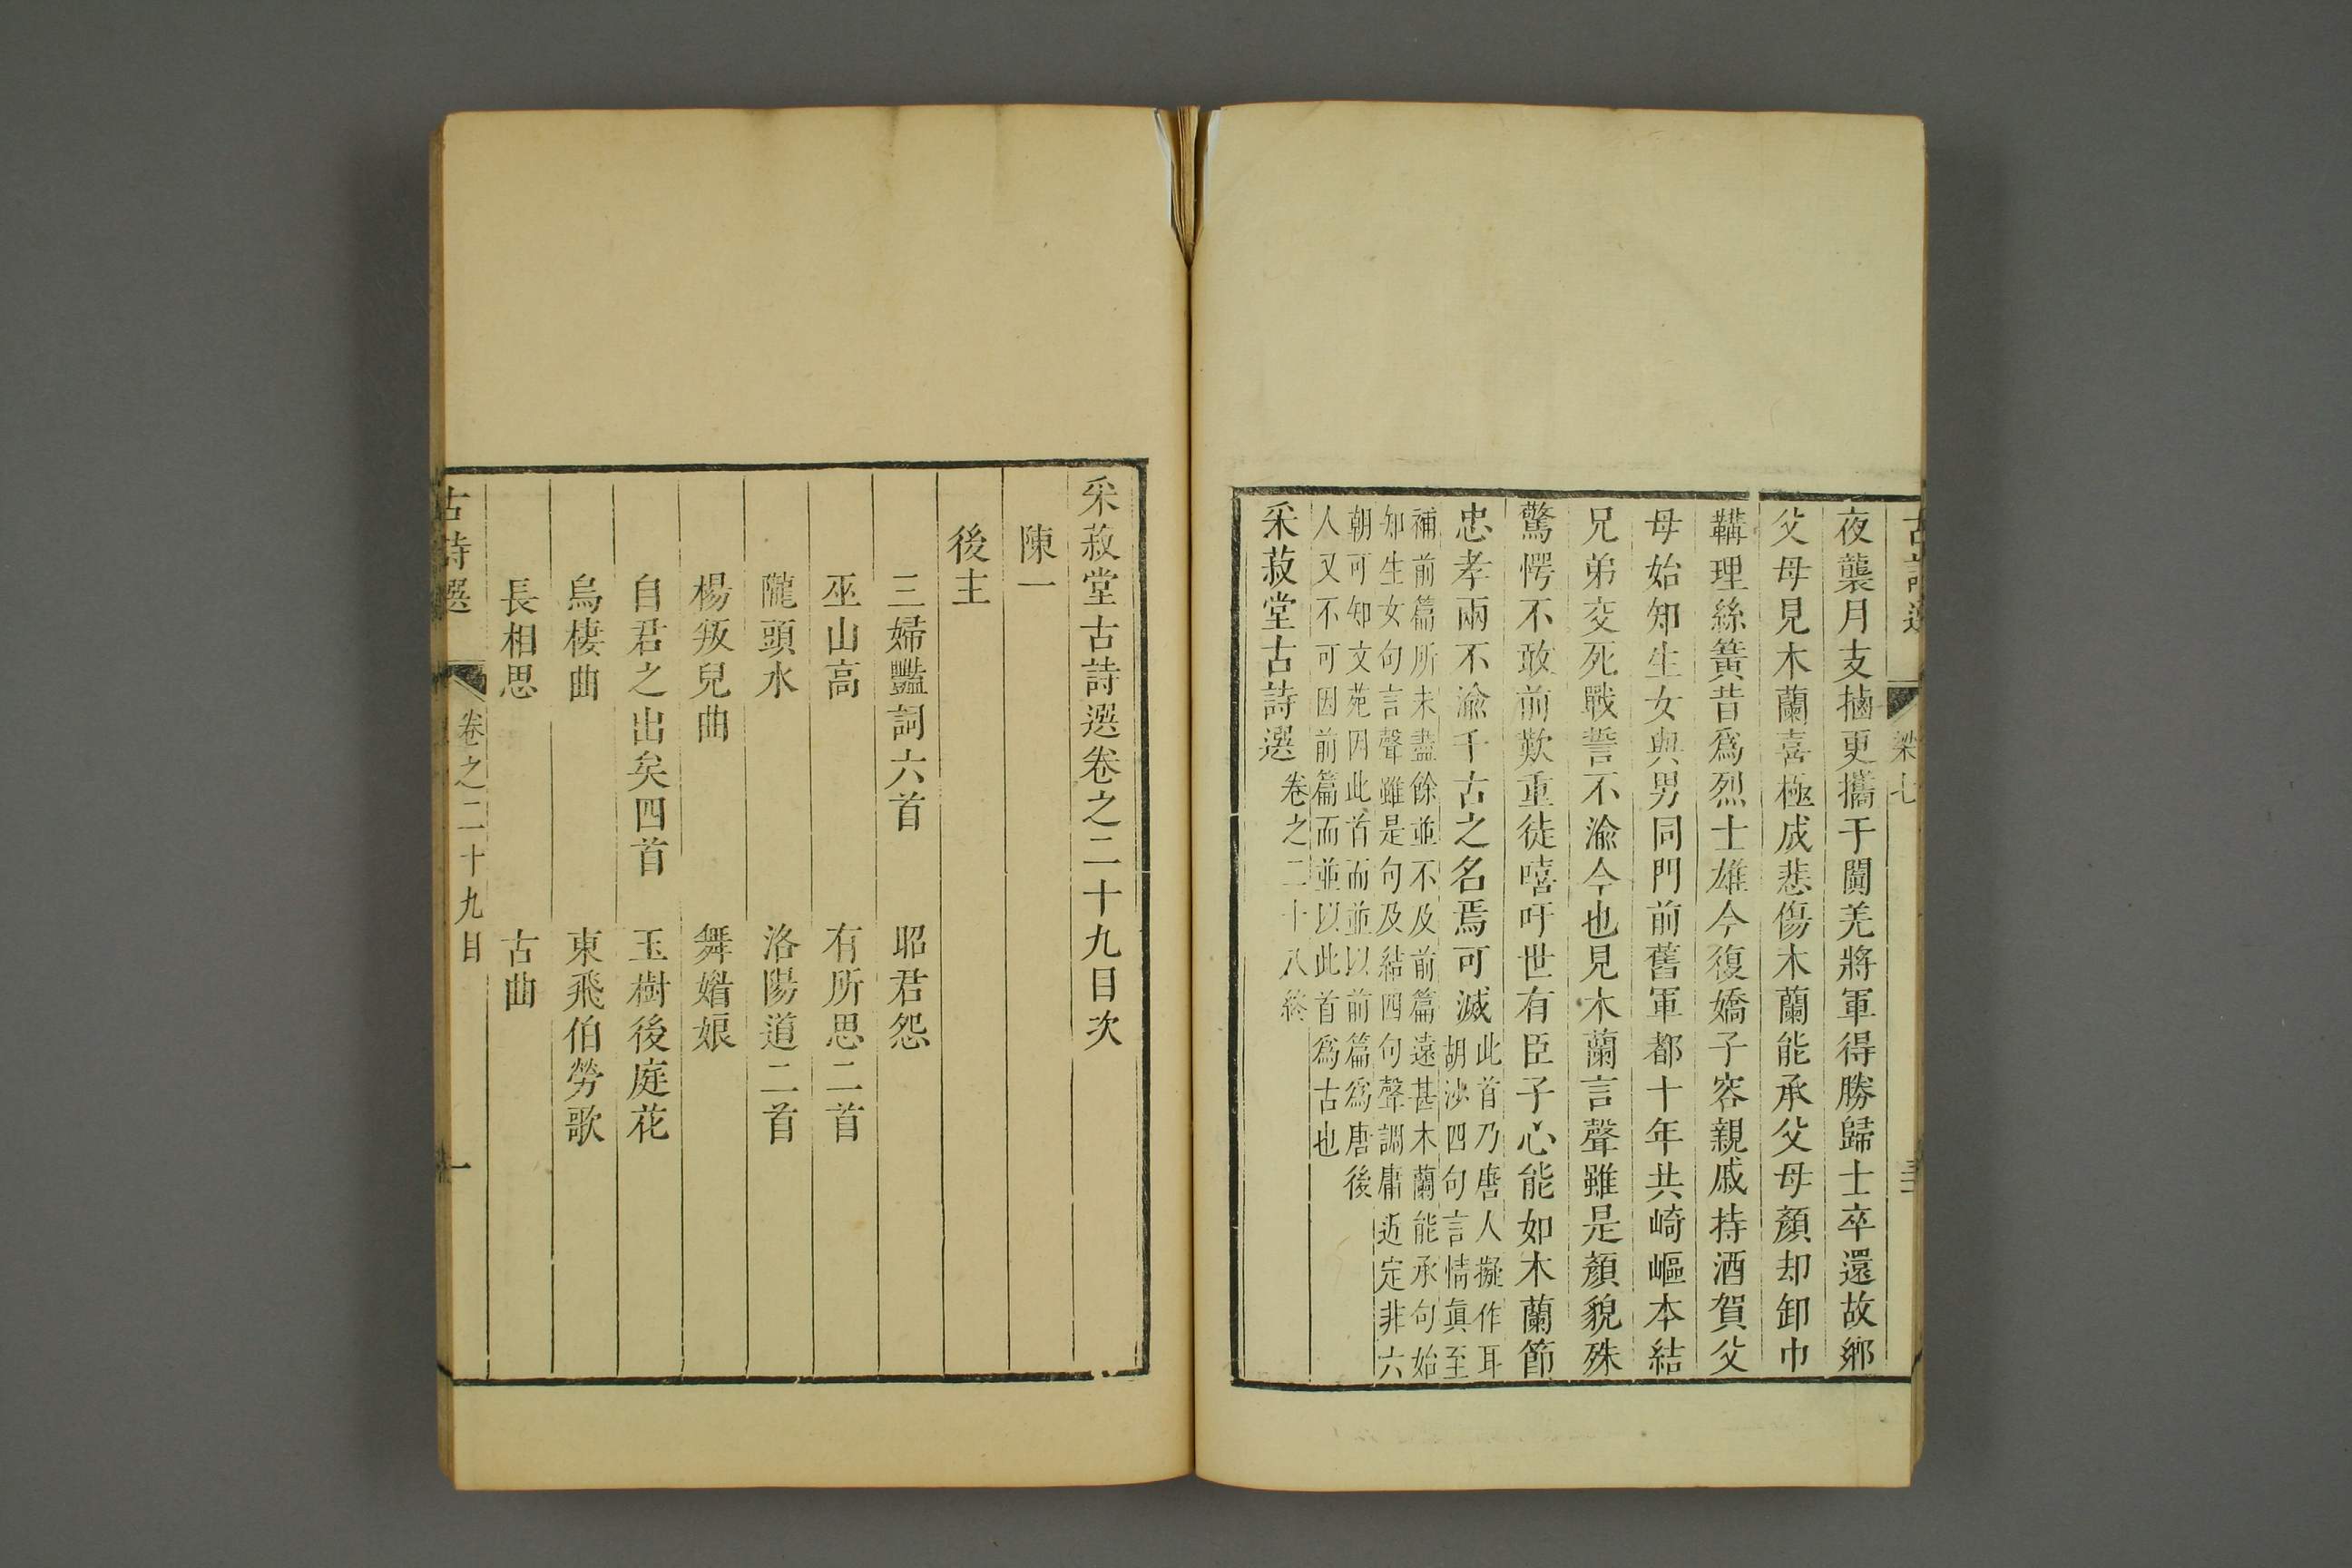 古詩選 梁七
夜襲月支擒更攜于闐羌將軍得勝歸士卒還故鄉
父母見木蘭喜極成悲傷木蘭能承父母顏却卸巾
鞲理絲簧昔爲烈士雄今復嬌子容親戚持酒賀父
母始知生女與男同門前舊軍都十年共崎嶇本結
兄弟交死戰誓不渝今也見木蘭言聲雖是顏貌殊
驚愕不敢前歎重徒嘻吁世有臣子心能如木蘭節
忠孝兩不渝千古之名焉可滅
此首乃唐人擬作耳
胡沙四句言情眞至
補前篇所未盡餘並不及前篇遠甚木蘭能承句始
知生女句言聲雖是句及結四句聲調庸近定非六
朝可知文苑因此首而並以前篇爲唐後
人又不可因前篇而並以此首爲古也
采菽堂古詩選 卷之二十八終
采菽堂古詩選卷之二十九目次
陳一
後主
三婦豔詞六首 昭君怨
巫山高 有所思二首
隴頭水 洛陽道二首
楊叛兒曲 舞媠娘
自君之出矣四首 玉樹後庭花
烏棲曲 東飛伯勞歌
長相思 古曲
古詩選 卷之二十九目 一